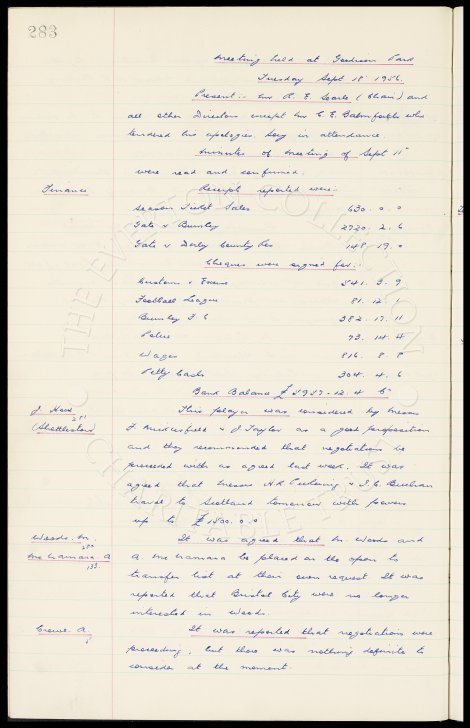 283
Meeting held at Goodison Park
Tuesday Sept 18 1956.
Present:- Mr R. E. Searle (Chair) and
all other Directors except Mr C. E. Balmforth who
tendered his apologies. Secy in attendance.
Minutes of Meeting of Sept 11th
were read and confirmed.
Finance
Receipts reported were:-
Season Ticket Sales 630. 0. 0
Gate v Burnley 2920. 2. 6
Gate v Derby County Res 148. 19. 0
Cheques were signed for:-
Customs & Excise 541. 3. 9
Football League 81. 12. 1
Burnley F.C. 382. 17. 11
Police 73. 14. 4
Wages 816. 8. 8
Petty Cash 304. 4. 6
Bank Balance £ 5957-12. 4
J. Hard
281
(Shettleston)
This player was considered by Messrs
F. Micklesfield & J Taylor as a good proposition
and they recommended that negotiations be
proceeded with as agreed last week. It was
agreed that Messrs H.R. Pickering & I.C. Buchan
travel to Scotland tomorrow with powers
up to £1500. 0. 0
Woods. M.
280
McNamara. A
133
It was agreed that M. Woods and
A. McNamara be placed on the open to
transfer list at their own request. It was
reported that Bristol City were no longer
interested in Woods.
Crowe. A.
It was reported that negotiations were
proceeding, but there was nothing definite to
consider at the moment.
THE EVERTON COLLECTION
© CHARITABLE TRUST